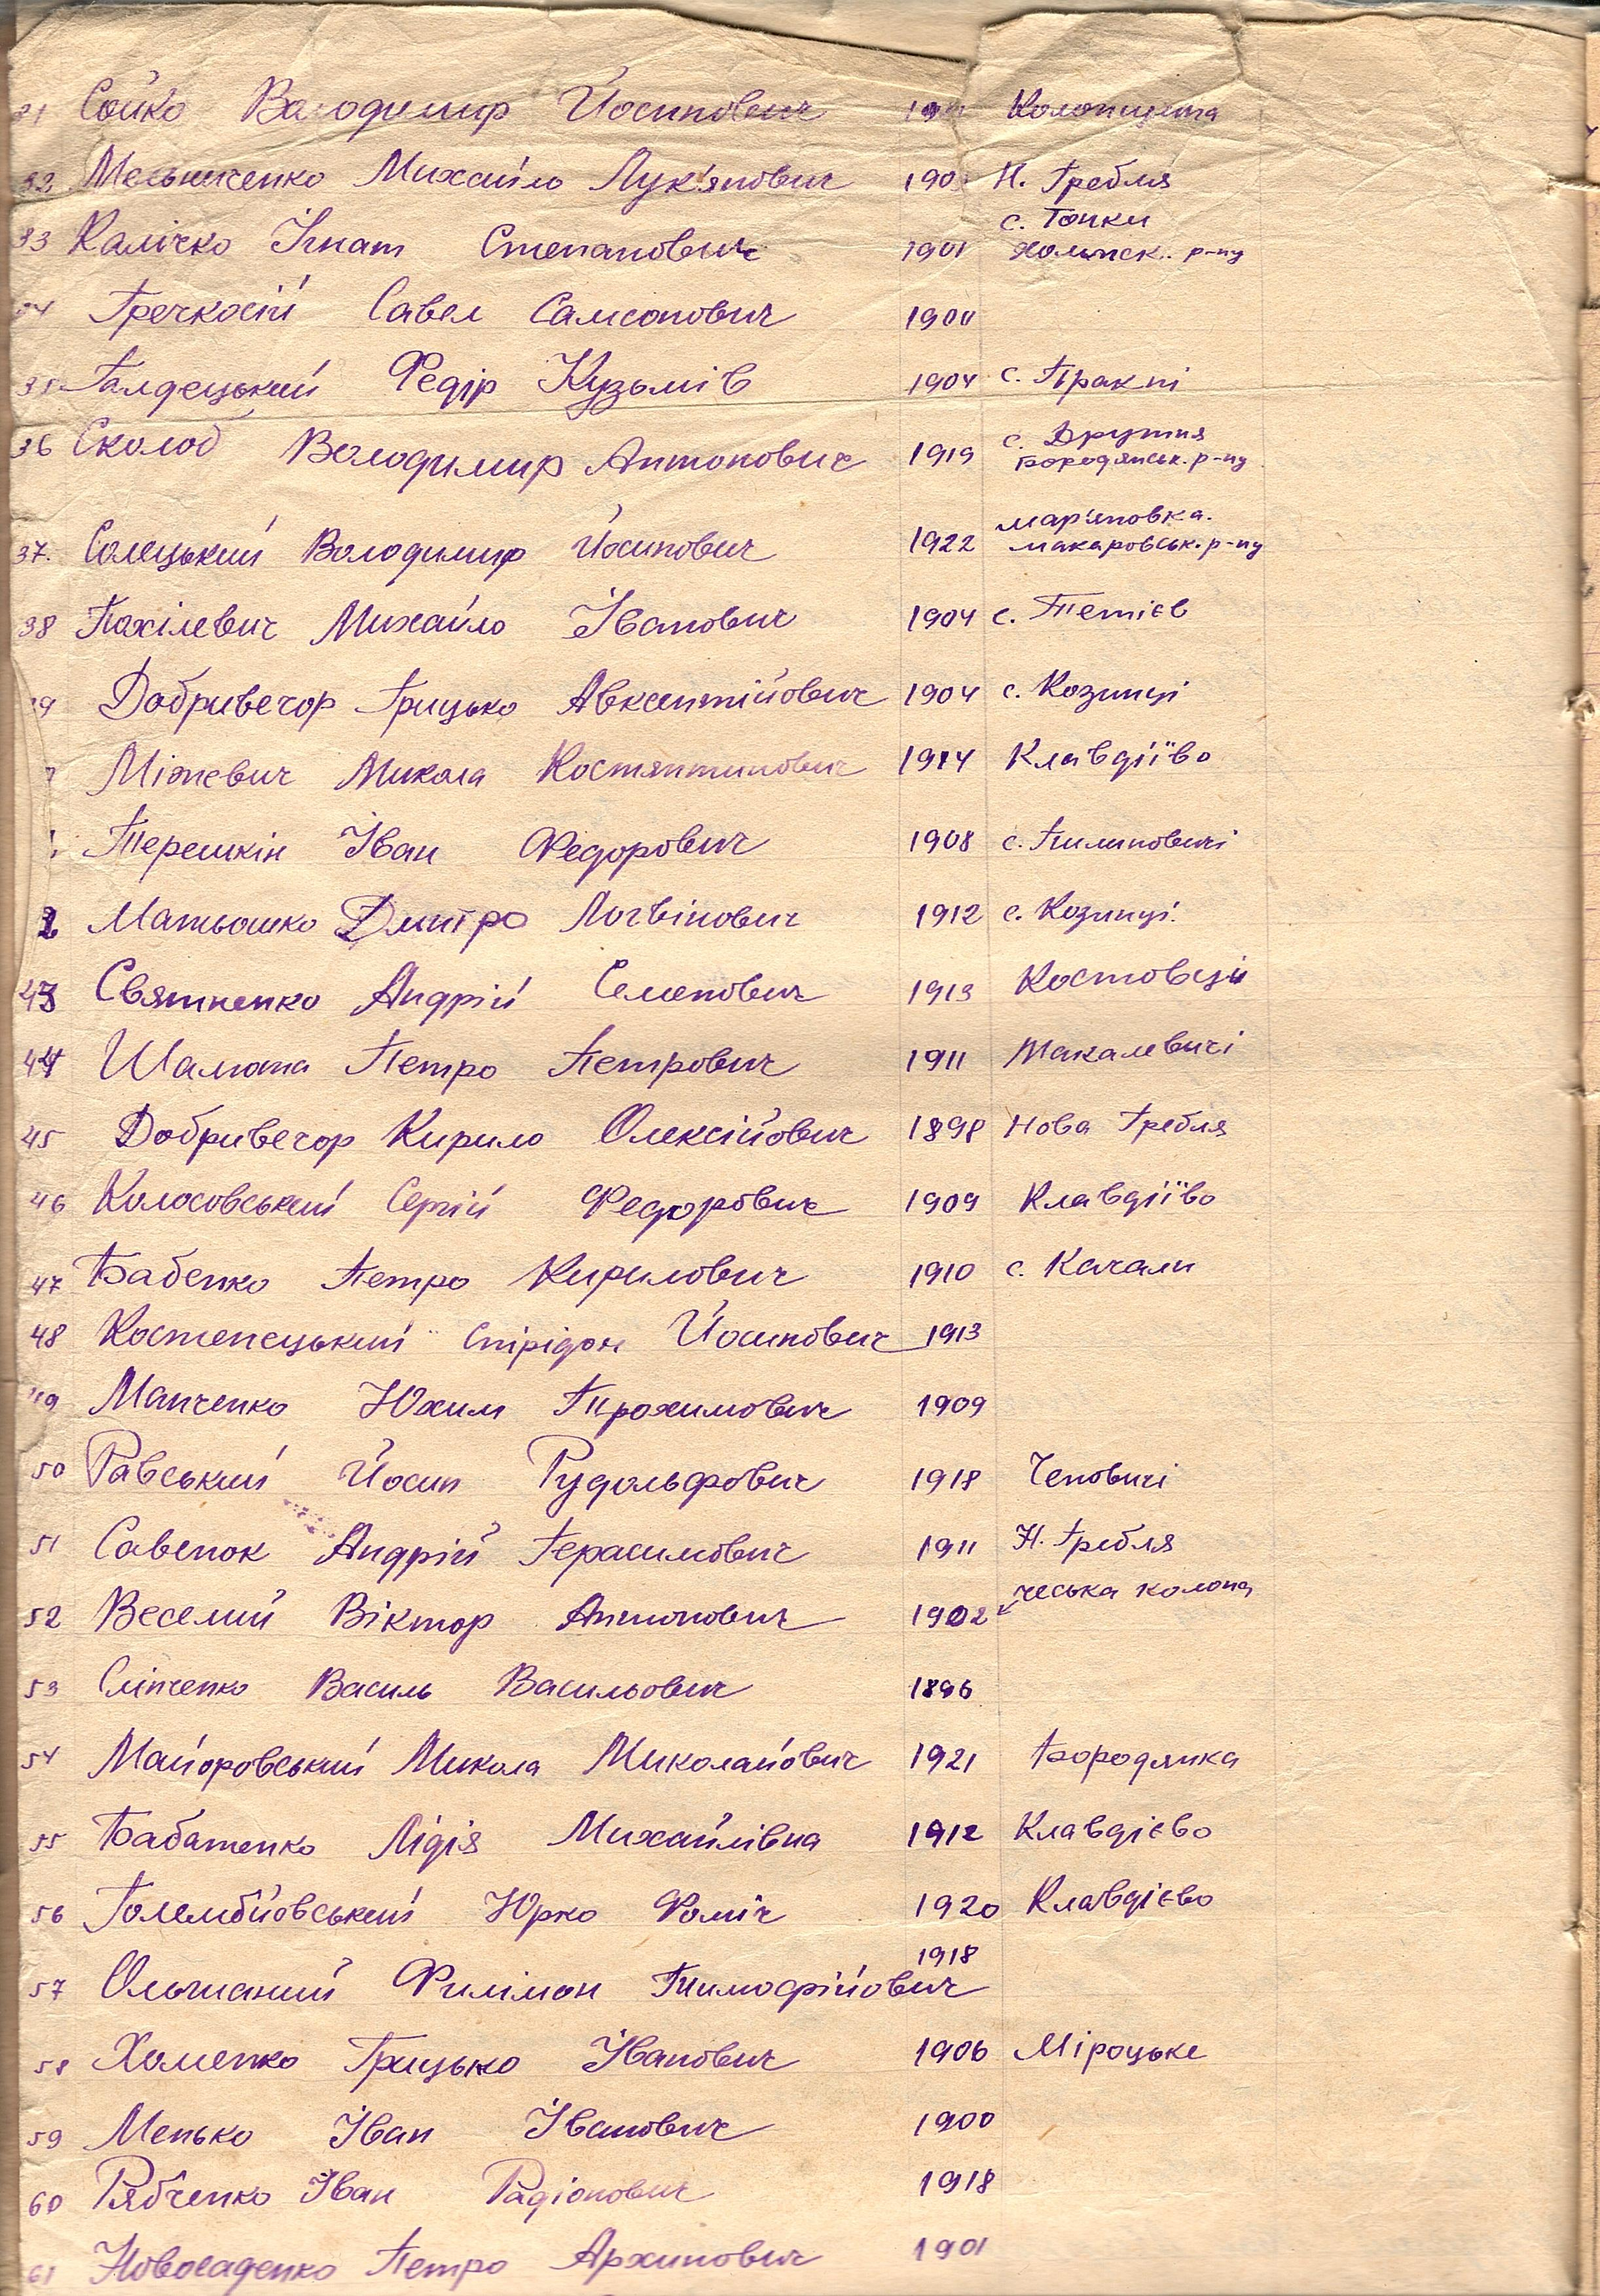 31 Сойко Володимир Йосипович 19 Колонщина
32 Мельниченко Михайло Лук'янович 190 Н. Гребля
с. Тонки
33 Калічко Ігнат Степанович 1901 р-ну
34 Гречкосій Савел Самсонович 1900
35 Галдецький Федір Кузьмів 1904 с.
36 Сколоб Володимир Антонович 1919 с. Друтня
Бородянськ. р-ну
мар'яновка.
37. Солецький Володимир Йосипович 1922 макаровськ. р-ну
38 Пахілевич Михайло Іванович 1904 с. Тетієв
39 Добривечор Грицько Авксентійович 1904 с. Козинці
Міткевич Микола Костянтинович 1914 Клавдіїво
Терешкін Іван Федорович 1908 с. Пилиповичі
2 Матьошко Дмитро Логвінович 1912 с. Козинці.
43 Святненко Андрій Семенович 1913
44 Шалюта Петро Петрович 1911 Макалевичі
45 Добривечор Кирило Олексійович 1898 Нова Гребля
46 Колосовський Сергій Федорович 1909 Клавдіїво
47 Бабенко Петро Кирилович 1910 с. Качали
48 Костенецький Спірідон Йосипович 1913
49 Манченко Юхим Трохимович 1909
50 Равський Йосип Рудольфович 1918 Чеповичі
51 Савенок Андрій Герасимович 1911 Н. Гребля
чеська колона
52 Веселий Віктор Антонович 1902
53 Сліпченко Василь Васильович 1896
54 Майоровський Микола Миколайович 1921 Бородянка
55 Бабатенко Лідія Михайлівна 1912 Клавдієво
56 Голембйовський Юрко Фоміч 1920 Клавдієво
1918
57 Ольшаний Филімон Тимофійович
58 Хоменко Грицько Іванович 1906 Міроцьке
59 Менько Іван Іванович 1900
60 Рябченко Іван Радіонович 1918
61 Новосаденко Петро Архипович 1901